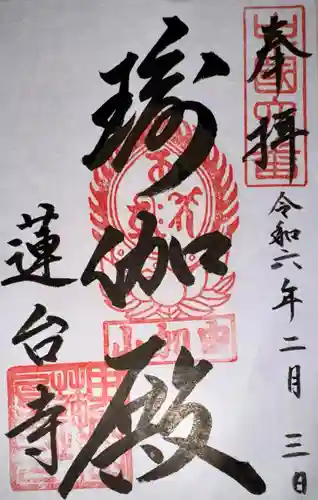 奉拝
令和六年二月三日
瑜伽殿
由加山
蓮台寺